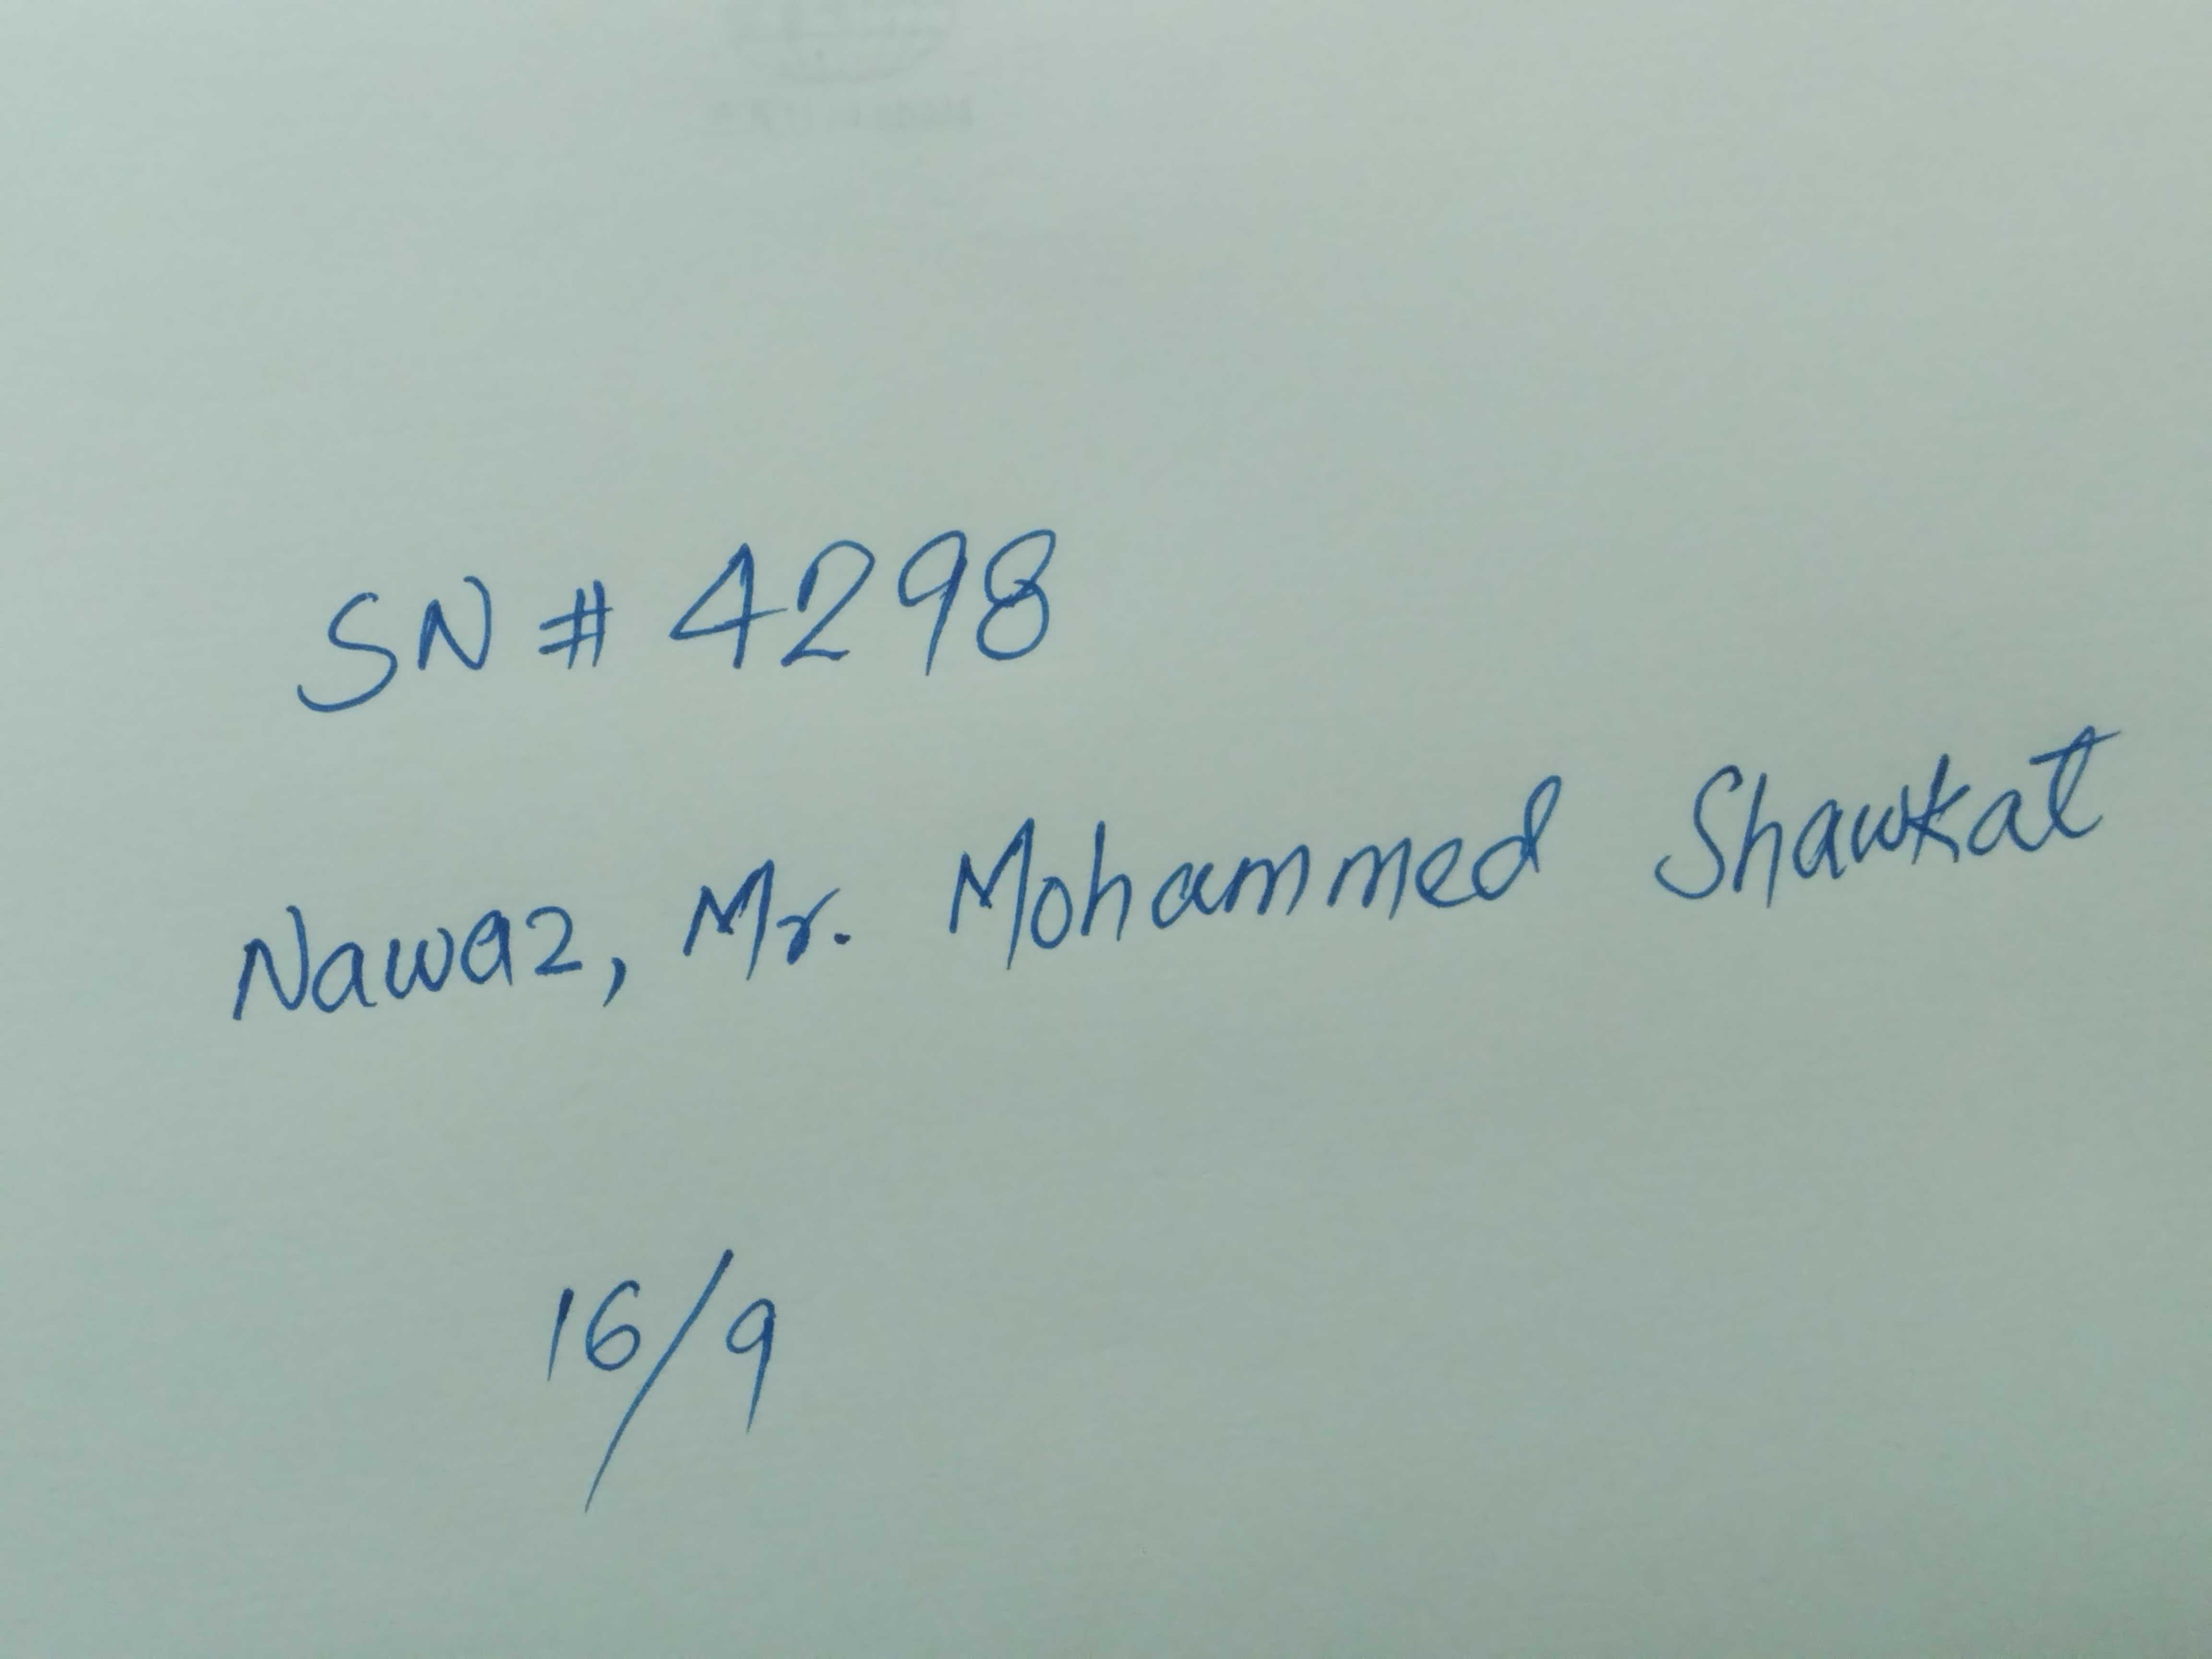 SN # 4298
Nawaz, Mr. Mohammed Shawkat
16/9